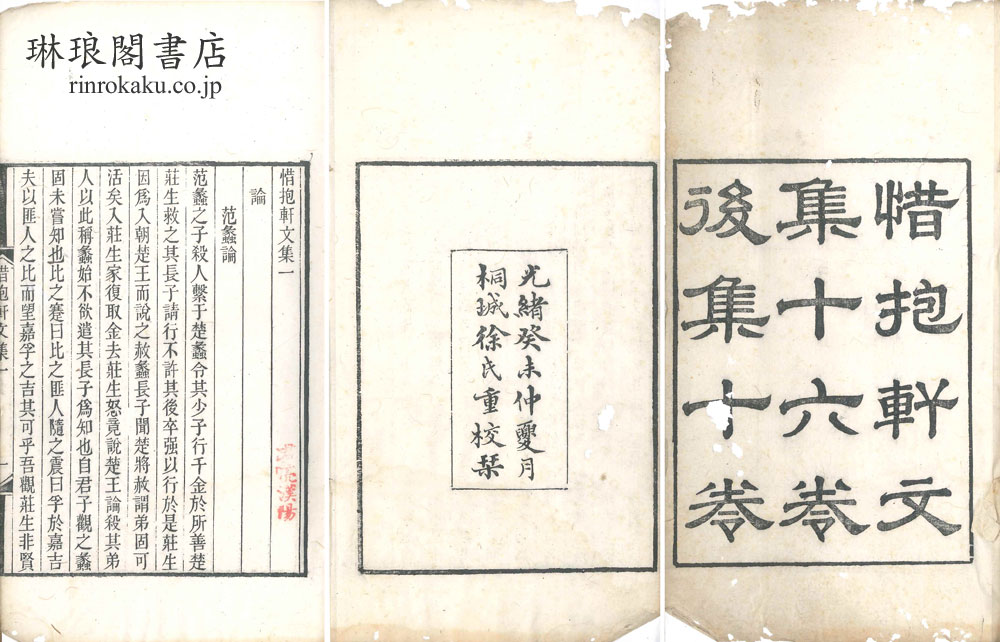 琳琅閣書店
rinrokaku.co.jp
惜抱軒文
集十六卷
後集十卷
光緒癸未仲夏月
桐城徐氏重校栞
惜抱軒文集一
論
范蠡論
范蠡之子殺人繫于楚蠡令其少子行千金於所善楚
莊生救之其長子請行不許其後卒强以行於是莊生
因爲入朝楚王而說之赦蠡長子聞楚將赦謂弟固可
活矣入莊生家復取金去莊生怒竟說楚王論殺其弟
人以此稱蠡始不欲遣其長子爲知也自君子觀之蠡
固未嘗知也比之蹇曰比之匪人隨之震曰孚於嘉吉
夫以匪人之比而望嘉孚之吉其可乎吾觀莊生非賢
惜抱軒文集一
一
漢陽